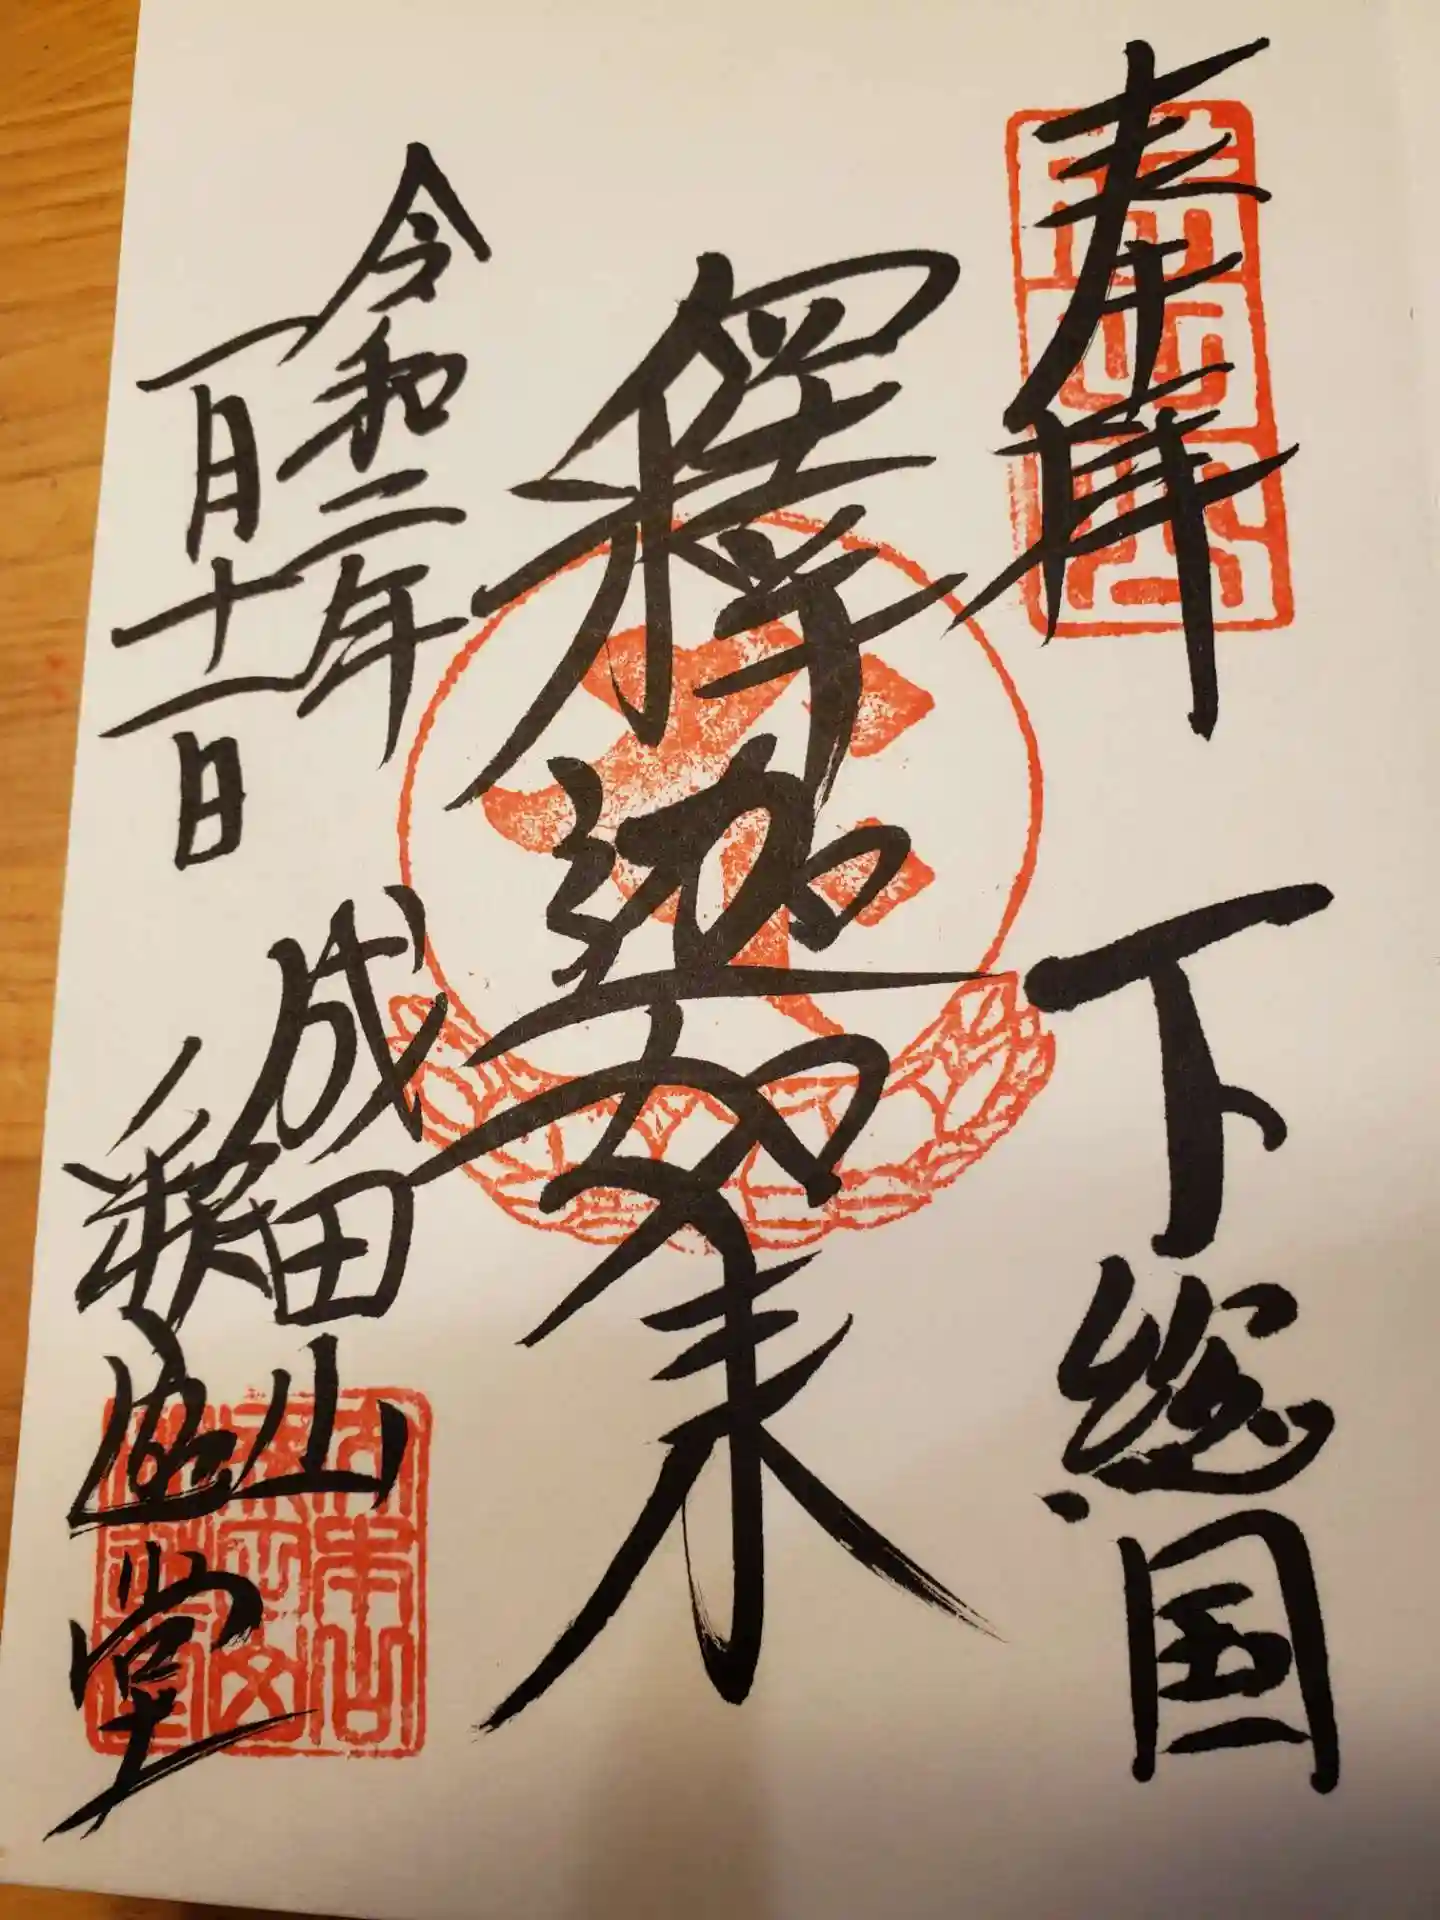 奉拝 下総国
釋迦如来
令和二年
一月十一日
成田山
釋迦堂